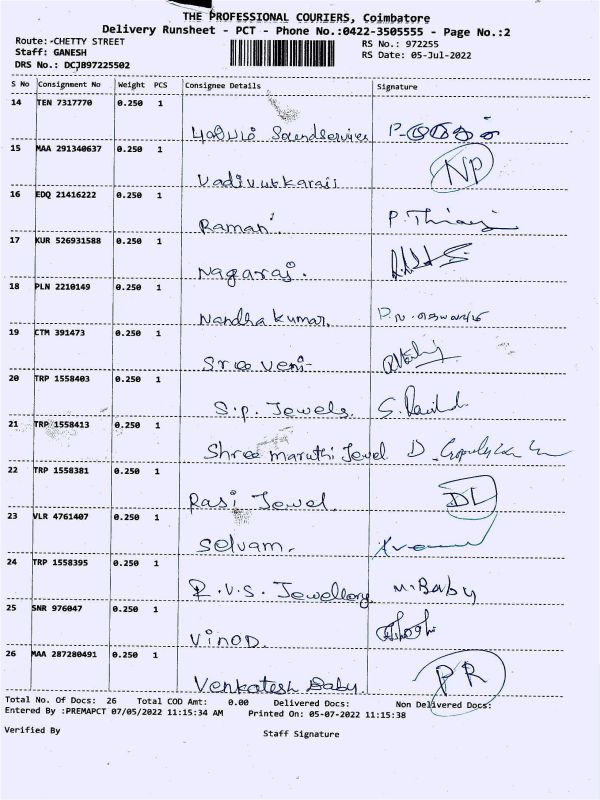 THE PROFESSIONAL COURIERS, Coimbatore
Delivery Runsheet - PCT - Phone No.:0422-3505555 - Page No.:2
Route:-CHETTY STREET RS No.: 972255
Staff: GANESH RS Date: 05-Jul-2022
DRS No.: DCJ897225502
S No Consignment No Weight PCS Consignee Details Signature
14 TEN 7317770 0.250 1
Soundservices
15 MAA 291340637 0.250 1
NP
16 EDQ 21416222 0.250 1
Raman P.
17 KUR 526931588 0.250 1
Nagaraj.
18 PLN 2210149 0.250 1
Nandha kumar.
19 CTM 391473 0.250 1
Sree veni
20 TRP 1558403 0.250 1
S.p. Jewels. S.
21 TRP 1558413 0.250 1
Shree maruthi Jewel D
22 TRP 1558381 0.250 1
Rasi Jewel. DL
23 VLR 4761407 0.250 1
Selvam.
24 TRP 1558395 0.250 1
R.V.S. Jewellory M. Baby
25 SNR 976047 0.250 1
Vinod.
26 MAA 287280491 0.250 1
Venkatesh Baby. PR
Total No. Of Docs: 26 Total COD Amt: 0.00 Delivered Docs: Non Delivered Docs:
Entered By :PREMAPCT 07/05/2022 11:15:34 AM Printed On: 05-07-2022 11:15:38
Verified By Staff Signature